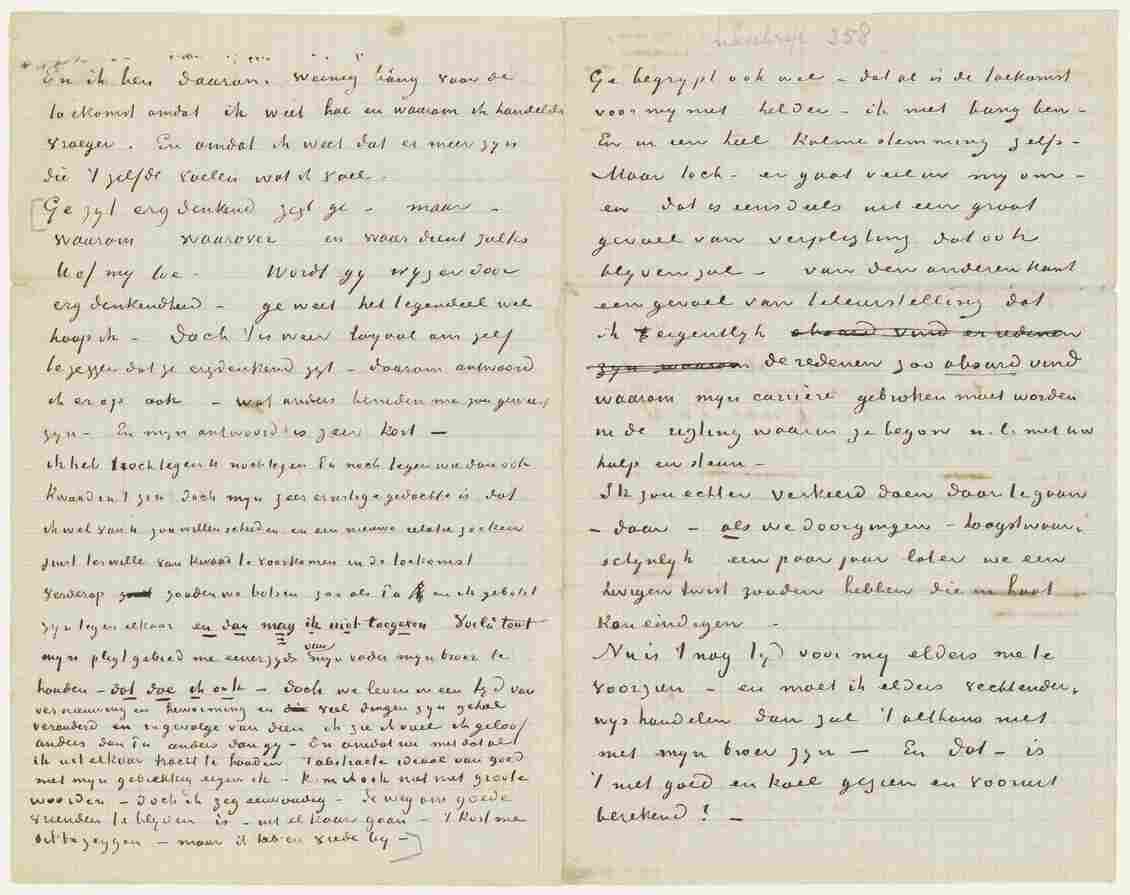 En ik ben daarom weinig bang voor de
toekomst omdat ik weet hoe en waarom ik handelde
vroeger. En omdat ik weet dat er meer zyn
die 't zelfde voelen wat ik voel.
Ge zyt ergdenkend zegt ge – maar –
waarom waarover en waar dient zulks
U of my toe – Wordt gy wyzer door
ergdenkendheid – ge weet het tegendeel wel
hoop ik – Doch 't is weer loyaal om zelf
te zeggen dat ge ergdenkend zyt – daarom antwoord
ik er op ook – wat anders beneden me zou geweest
zyn – En myn antwoord is zeer kort –
ik heb noch tegen U noch tegen Pa noch tegen wie dan ook
kwaad in 't zin doch myn zeer ernstige gedachte is dat
ik wel van U zou willen scheiden en een nieuwe relatie zoeken
juist ter wille van kwaad te voorkomen in de toekomst
verderop zouden we botsen zoo als Pa en ik gebotst
zyn tegen elkaar en dan mag ik niet toegeven Voila tout
myn pligt gebied me eenerzyds van myn vader myn broer te
houden – dat doe ik ook – doch we leven in een tyd van
vernieuwing en hervorming en veel dingen zyn geheel
veranderd en ingevolge van dien ik zie ik voel ik geloof
anders dan Pa anders dan gy – En omdat nu met dat al
ik uit elkaar tracht te houden 't abstracte ideaal van goed
met myn gebrekkig eigen ik – kom ik ook niet met groote
woorden – doch ik zeg eenvoudig – de weg om goede
vrienden te blyven is – uit elkaar gaan – 't kost me
dit te zeggen – maar ik heb er vrede by –
Ge begrypt ook wel – dat al is de toekomst
voor my niet helder – ik niet bang ben –
En in een heel kalme stemming zelfs –
Maar toch – er gaat veel in my om –
en dat is eensdeels uit een groot
gevoel van verpligting dat ook
blyven zal – van den anderen kant
een gevoel van teleurstelling dat
ik eigentlyk absurd vind er redenen
zyn waarom de redenen zoo absurd vind
waarom myn carrière gebroken moet worden
in de rigting waarin ze begon n.l. met uw
hulp en steun –
Ik zou echter verkeerd doen daar te gaan
– daar – als we doorgingen – hoogstwaar-
schynlyk een paar jaar later we een
hevigen twist zouden hebben die in haat
kon eindigen –
Nu is 't nog tyd voor my elders me te
voorzien – en moet ik elders vechtender-
wys handelen dan zal 't althans niet
met myn broer zyn – En dat – is
't niet goed en koel gezien en vooruit
berekend? –